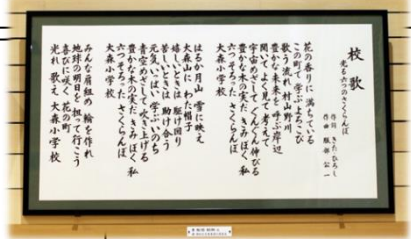 校歌
光る六つのさくらんぼ
作詞 きたひろし
作曲 服部公一
花の香りに 満ちている
この町で 学ぶよろこび
歌う流れ 村山野川
豊かな未来を 呼ぶ岸辺
聞いてよく見て 考えて
宇宙めざして ぐんぐん伸びる
豊かな木の実だ きみ ぼく 私
六つそろった さくらんぼ
大森小学校
はるか月山 雪に映え
大森山に わた帽子
嬉しいときは 駆け回り
苦しいときは 助け合う
元気いっぱい 学ぶいのち
青空めざして 吹き上げる
豊かな木の実だ きみ ぼく 私
六つそろった さくらんぼ
大森小学校
みんな肩組め 輪を作れ
地球の明日を 担って行こう
喜びに咲く 花の町
光れ 歌え 大森小学校